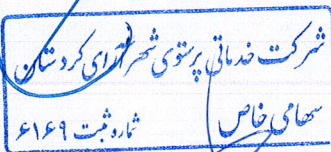 شرکت خدماتی پرتوی شهر آرای کردستان
سهامی خاص
شماره ثبت ۶۱۶۹